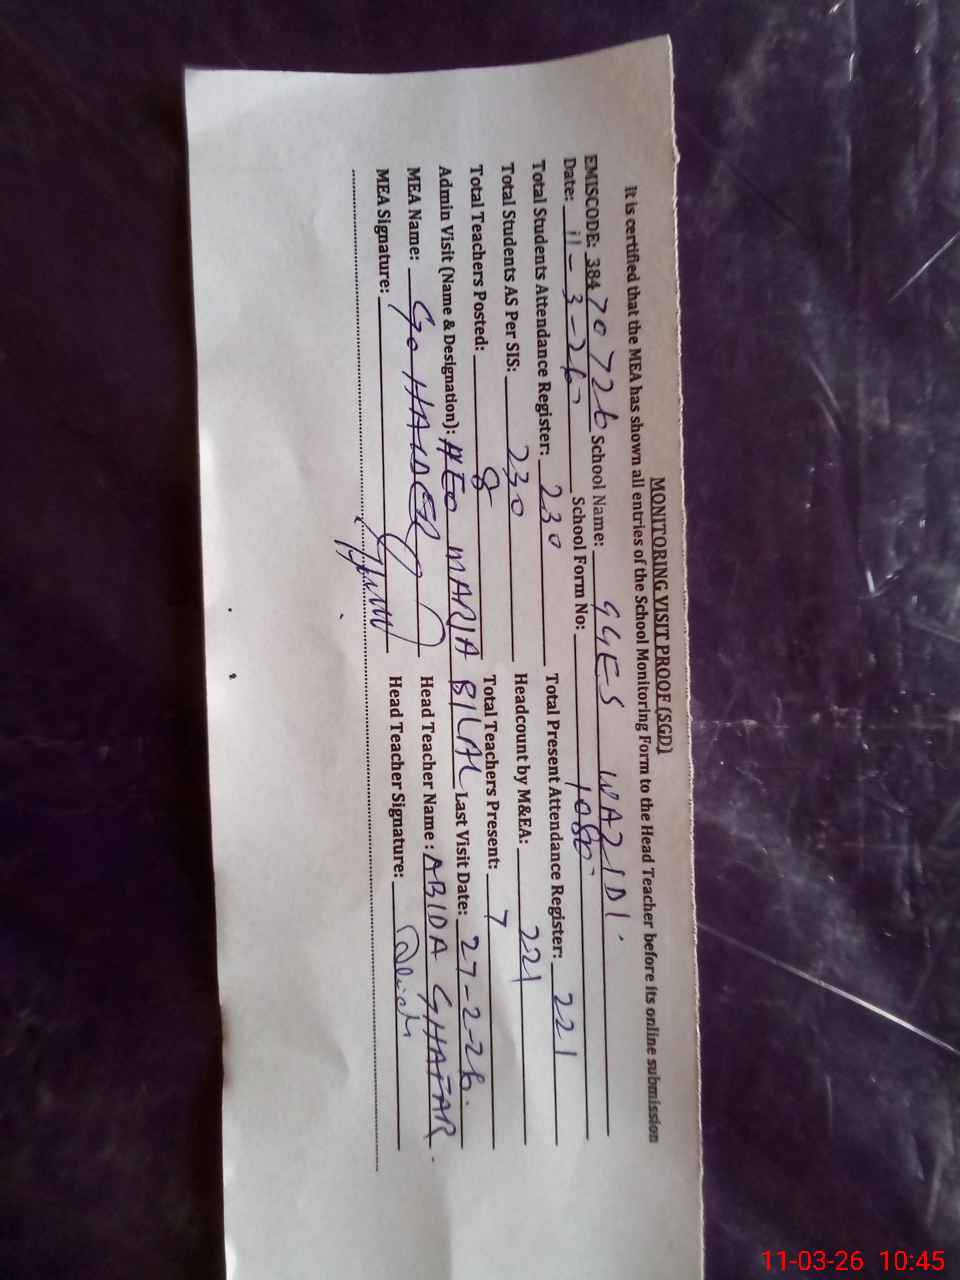 MONITORING VISIT PROOF (SGD)
It is certified that the MEA has shown all entries of the School Monitoring Form to the Head Teacher before its online submission
EMISCODE: 38470726 School Name: GGES WAZIDI.
Date: 11-3-26 School Form No: 1086.
Total Students Attendance Register: 230 Total Present Attendance Register: 221
Total Students AS Per SIS: 230 Headcount by M&EA: 221
Total Teachers Posted: 8 Total Teachers Present: 7
Admin Visit (Name & Designation): AEO MARIA BILAL Last Visit Date: 27-2-26.
MEA Name: G. HAIDER Head Teacher Name : ABIDA GHAFAR.
MEA Signature: Head Teacher Signature:
11-03-26 10:45